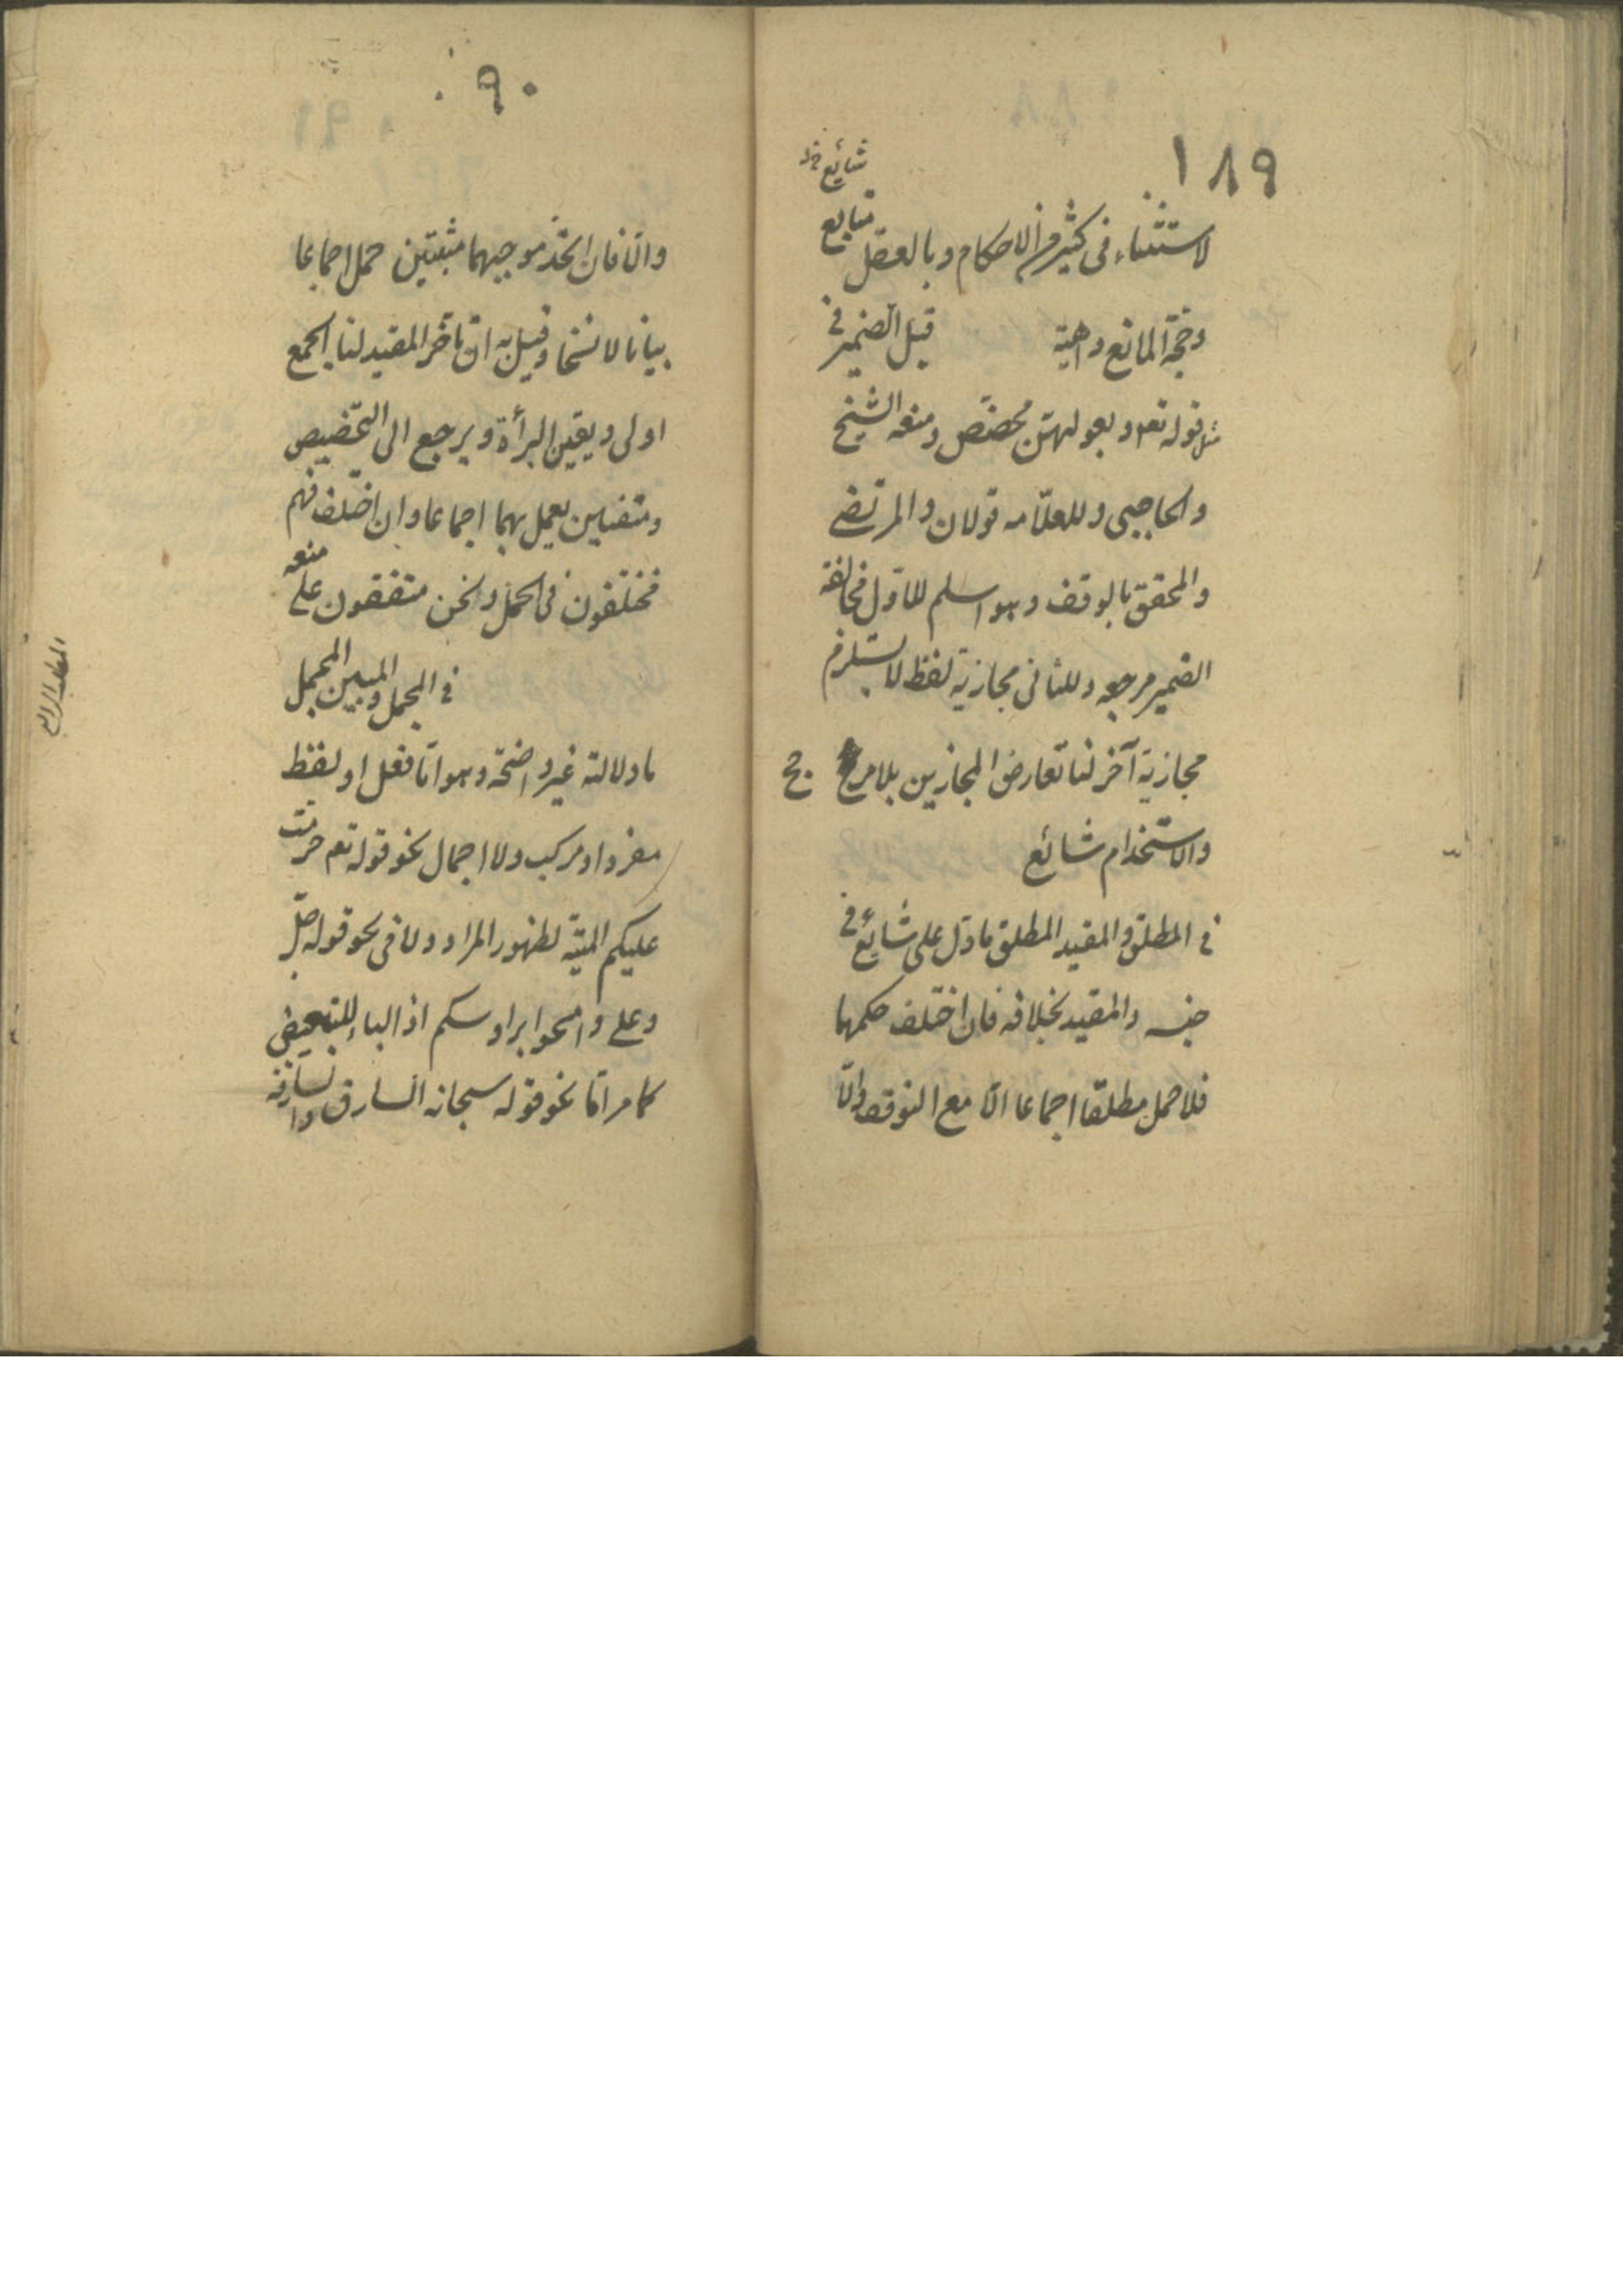 ١٨٩
شائع خ‍ل
لاستثناء فى كثير من الاحكام وبالعقل شايع
وحجة المانع واهية قيل الضمير فى
مثل قوله تعم وبعولتهن مخصّص ومنعه الشيخ
والحاجبى وللعلّامه قولان والمرتضى
والمحقق بالوقف وهو اسلم للاوّل مخالفة
الضمير مرجعه وللثانى مجازية لفظ لا يستلزم
مجازية آخر لنا تعارض المجازين بلا مرجح
والاستخدام شائع
فى المطلق والمقيد المطلق ما دلّ على شائع فى
جنسه والمقيد بخلافه فان اختلف حكمهما
فلا حمل مطلقا اجماعا الّا مع التوقف والّا
٩٠
والّا فان اتّحد موجبهما مثبتين حمل اجماعا
بيانا لا نسخا وقيل به ان تأخّر المقيد لنا الجمع
اولى ويقين البرأة ويرجع الى التخصيص
ومنفيين يعمل بهما اجماعا وان اختلف فهم
مختلفون فى الحمل ونحن متفقون على منعه
فى المجمل والمبين المجمل
ما دلالته غير واضحة وهو امّا فعل او لفظ
مفرد او مركب ولا اجمال نحو قوله تعم حرمت
عليكم الميتة لظهور المراد ولا فى نحو قوله جلّ
وعلى وامسحوا برؤسكم اذ الباء للتبعيض
كما مر امّا نحو قوله سبحانه السارق والسارقة
المطلب الرابع